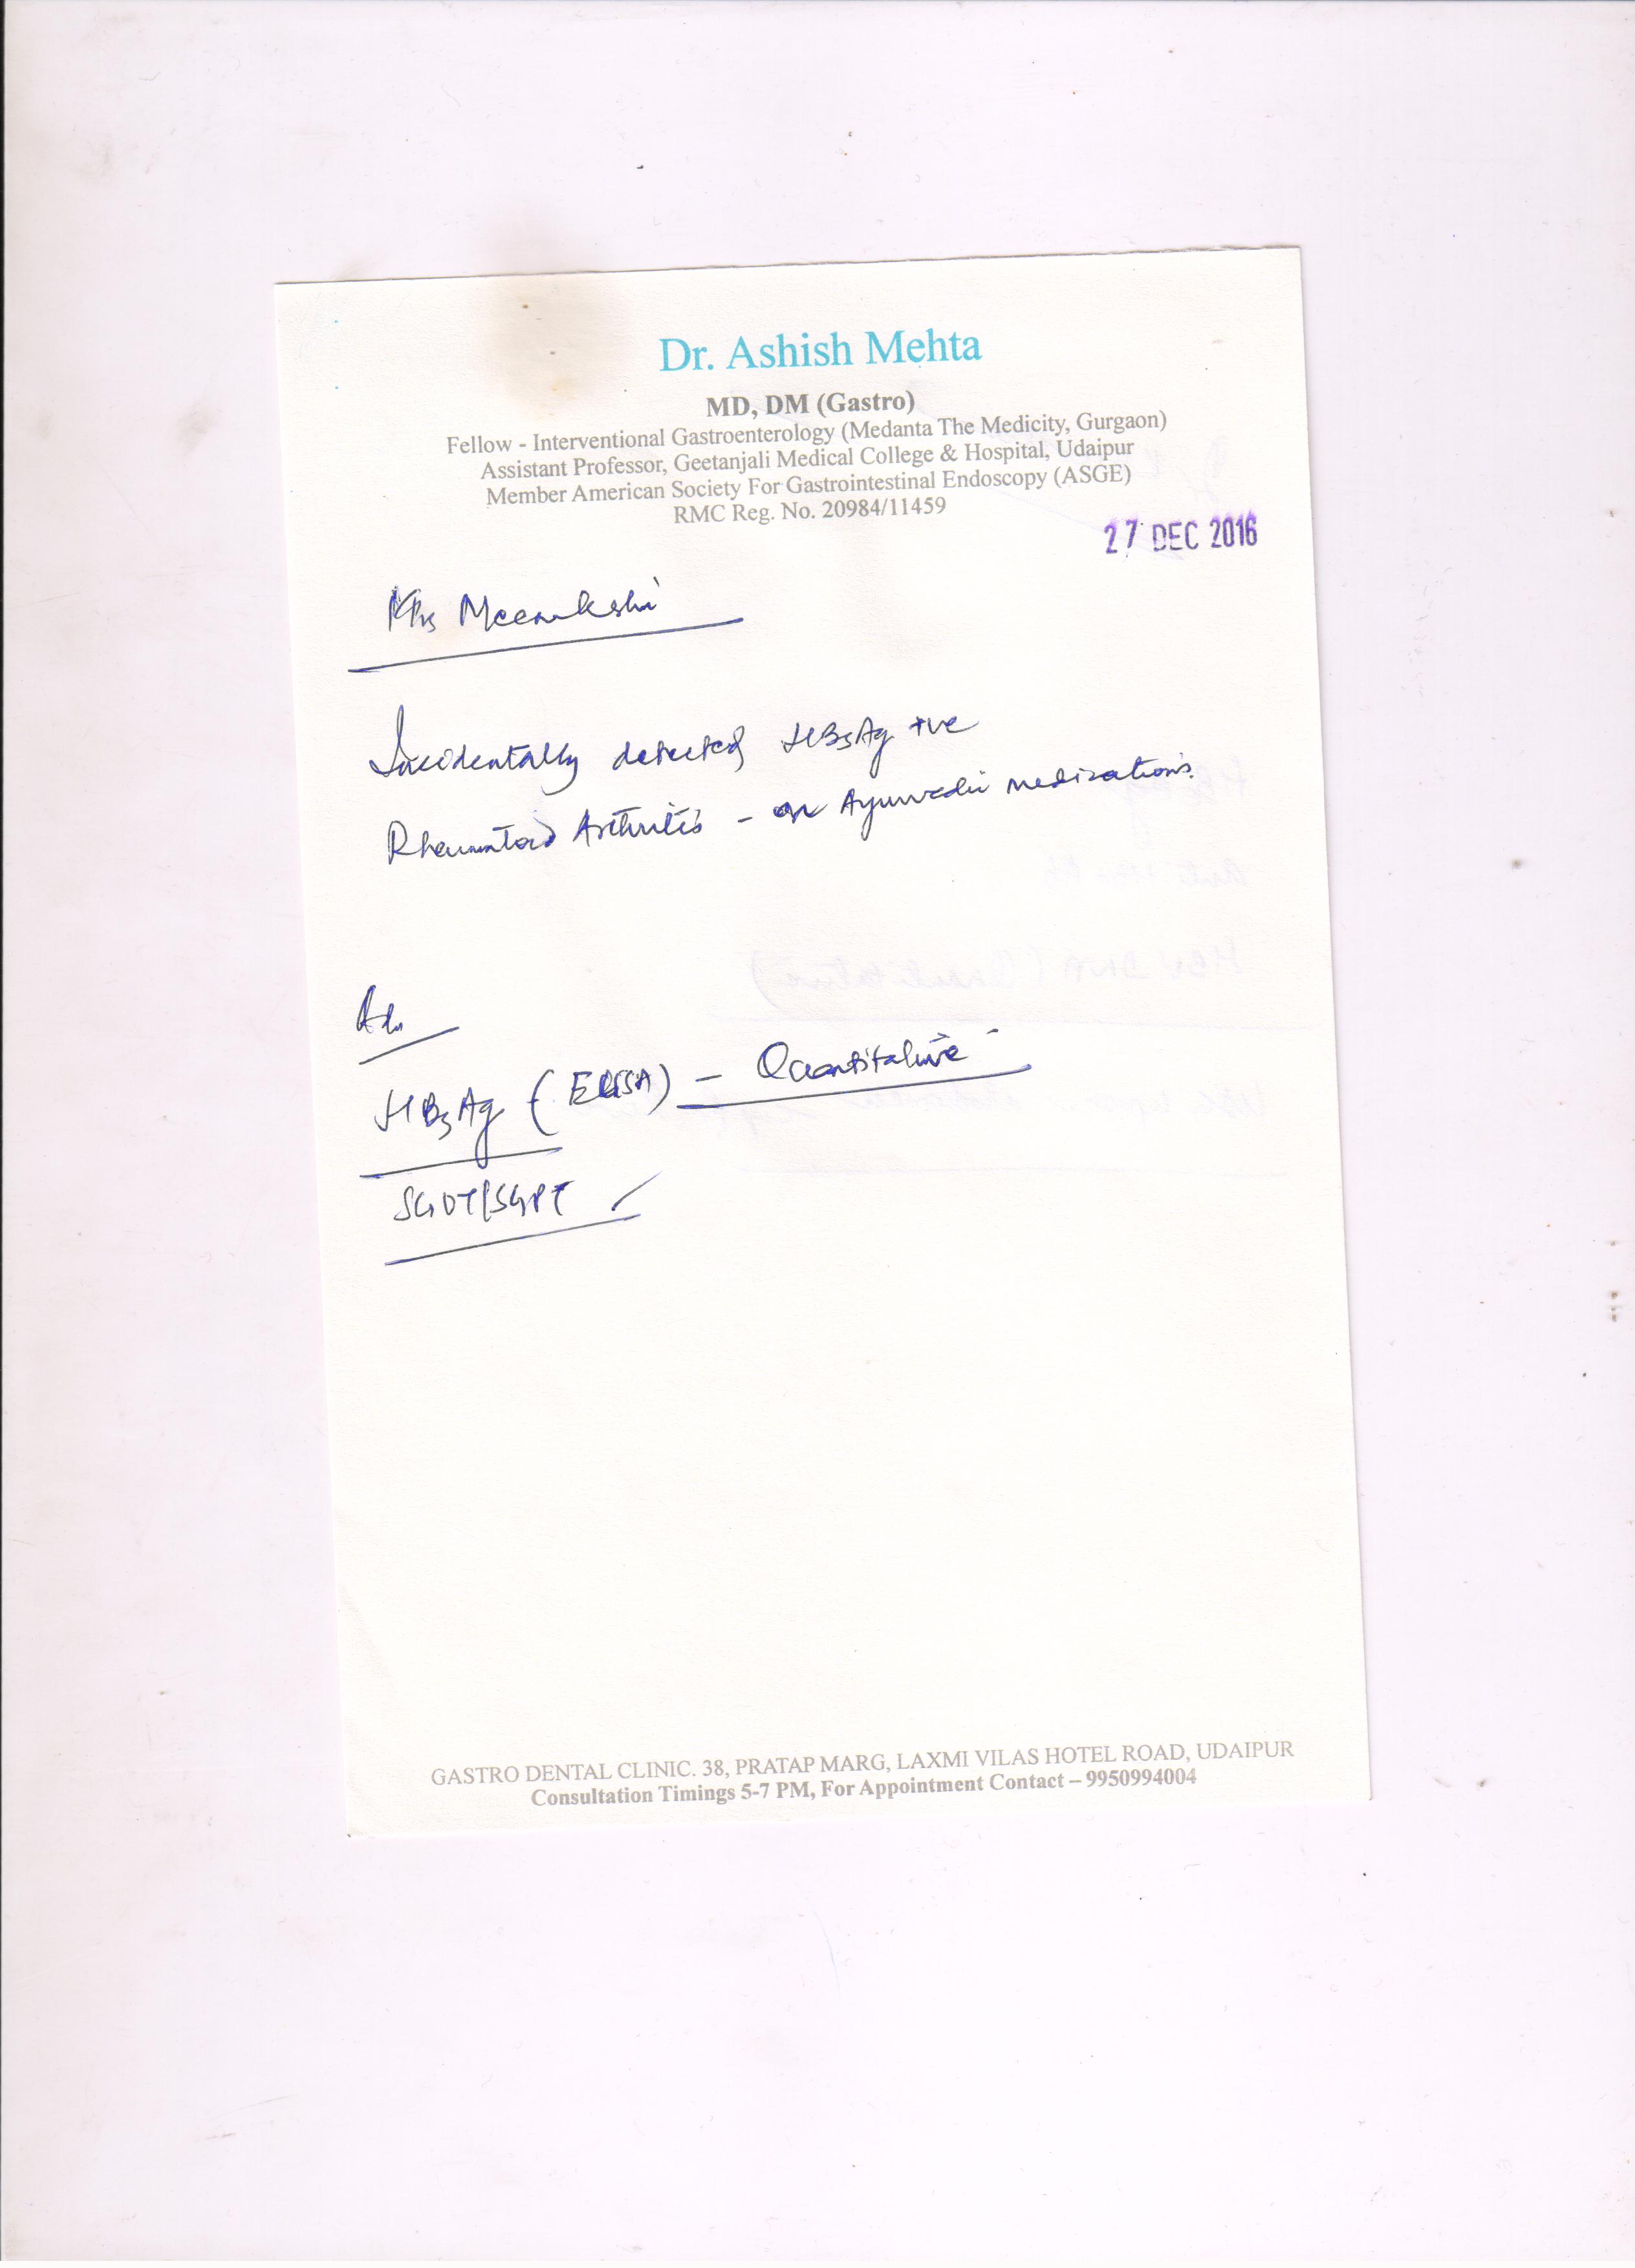 Dr. Ashish Mehta
MD, DM (Gastro)
Fellow - Interventional Gastroenterology (Medanta The Medicity, Gurgaon)
Assistant Professor, Geetanjali Medical College & Hospital, Udaipur
Member American Society For Gastrointestinal Endoscopy (ASGE)
RMC Reg. No. 20984/11459
27 DEC 2016
Mrs Meenakshi
Incidentally detected HBsAg +ve
Rheumatoid Arthritis - on Ayurvedic medications
Adv
HBsAg (ELISA) - Quantitative
SGOT/SGPT
GASTRO DENTAL CLINIC. 38, PRATAP MARG, LAXMI VILAS HOTEL ROAD, UDAIPUR
Consultation Timings 5-7 PM, For Appointment Contact – 9950994004